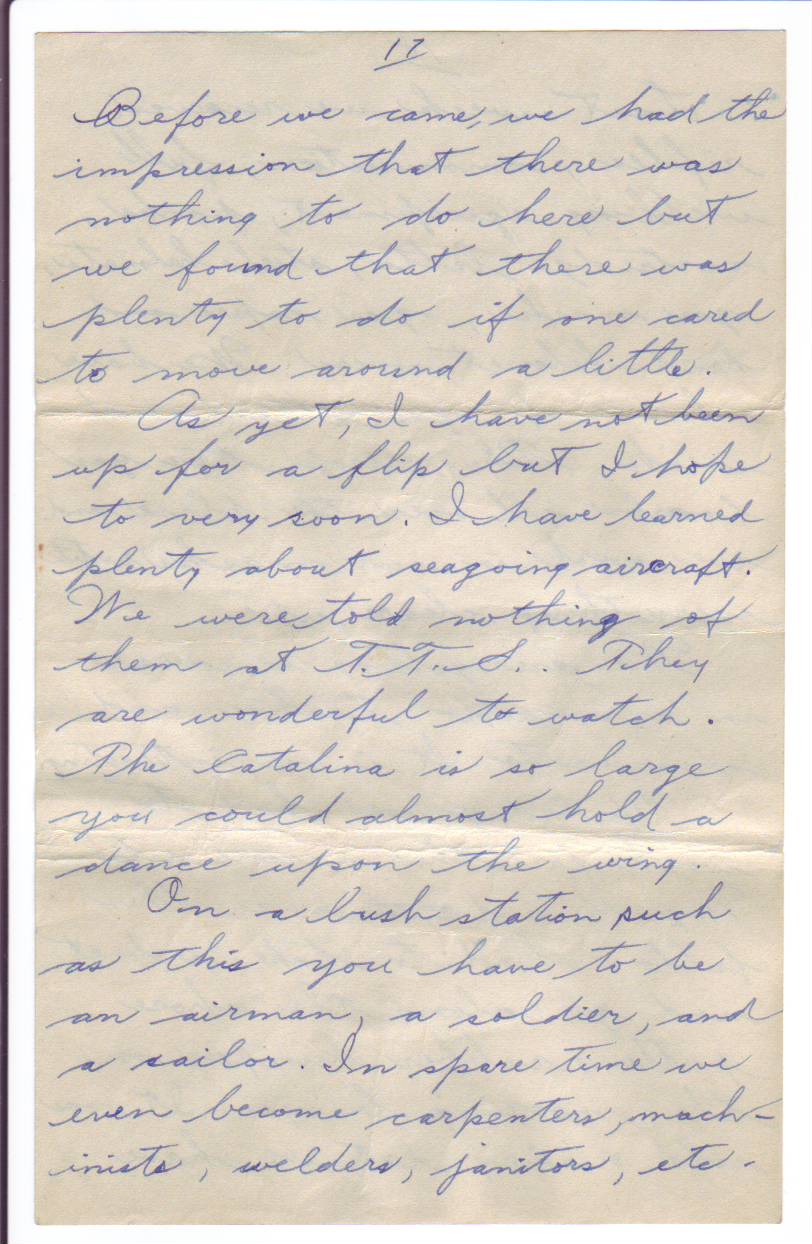 17
Before we came, we had the
impression that there was
nothing to do here but
we found that there was
plenty to do if one cared
to move around a little.
As yet, I have not been
up for a flip but I hope
to very soon. I have learned
plenty about seagoing aircraft.
We were told nothing of
them at T.T.S.. They
are wonderful to watch.
The Catalina is so large
you could almost hold a
dance upon the wing.
On a bush station such
as this you have to be
an airman, a soldier, and
a sailor. In spare time we
even become carpenters, mach-
inists, welders, janitors, etc.